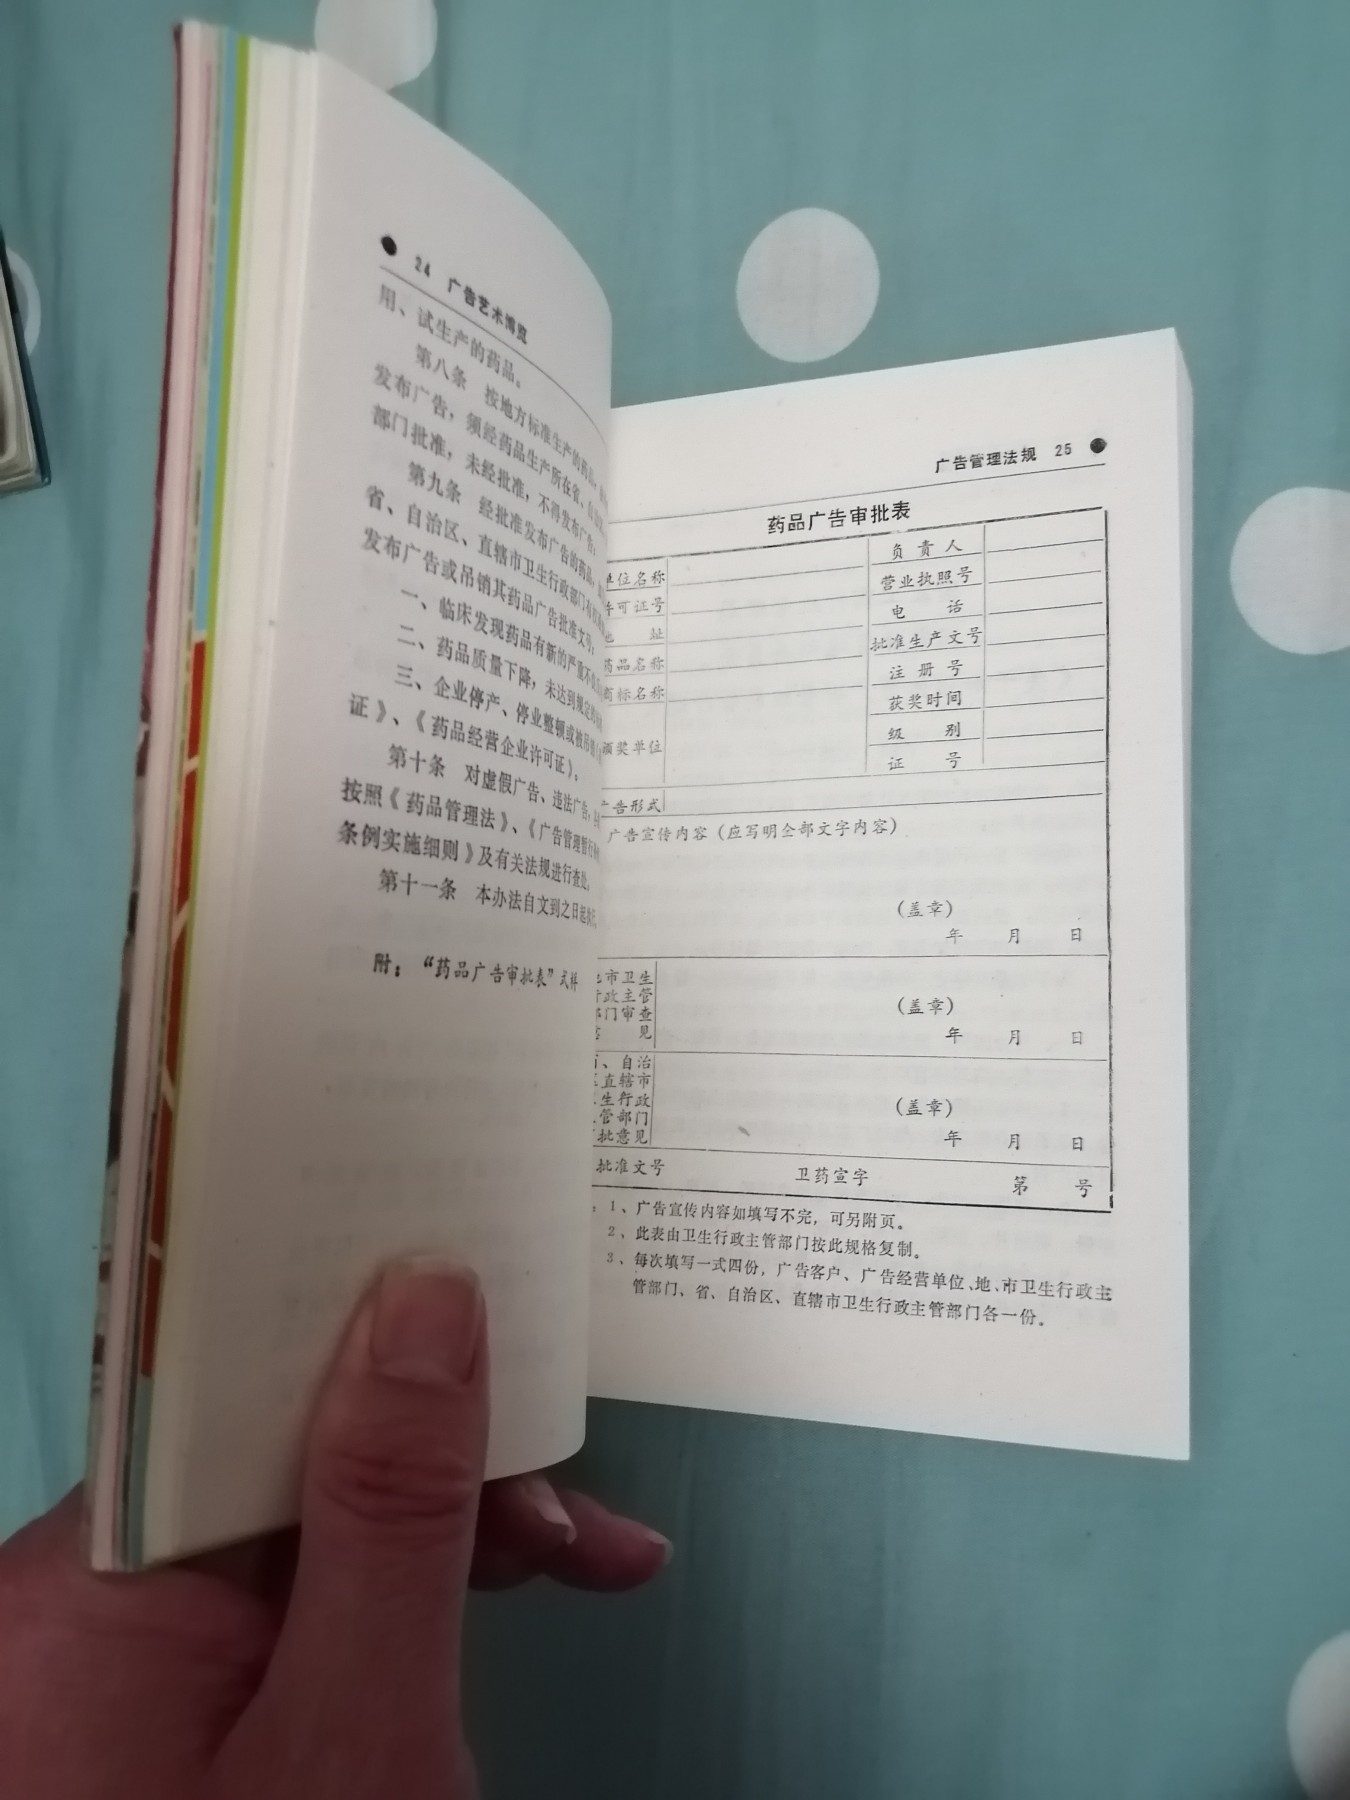 24 广告艺术博览
用、试生产的药品。
第八条 按地方标准生产的药品，
发布广告，须经药品生产所在省、
部门批准，未经批准，不得发布广告；
第九条 经批准发布广告的药品，
省、自治区、直辖市卫生行政部门有
发布广告或吊销其药品广告批准文号：
一、临床发现药品有新的严重不
二、药品质量下降，未达到规定的
三、企业停产、停业整顿或被吊销
证》、《药品经营企业许可证》。
第十条 对虚假广告、违法广告，
按照《药品管理法》、《广告管理暂行
条例实施细则》及有关法规进行查处。
第十一条 本办法自文到之日起
附：“药品广告审批表”式样
广告管理法规 25
药品广告审批表
单位名称 负责人
许可证号 营业执照号
地 址 电 话
药品名称 批准生产文号
商标名称 注册号
获奖时间
颁奖单位 级 别
证 号
广告形式
广告宣传内容（应写明全部文字内容）
（盖章）
年 月 日
市卫生
行政主管
部门审查 （盖章）
见 年 月 日
、自治
直辖市
生行政
管部门 （盖章）
批意见 年 月 日
批准文号 卫药宣字 第 号
：1、广告宣传内容如填写不完，可另附页。
2、此表由卫生行政主管部门按此规格复制。
3、每次填写一式四份，广告客户、广告经营单位、地、市卫生行政主
管部门、省、自治区、直辖市卫生行政主管部门各一份。